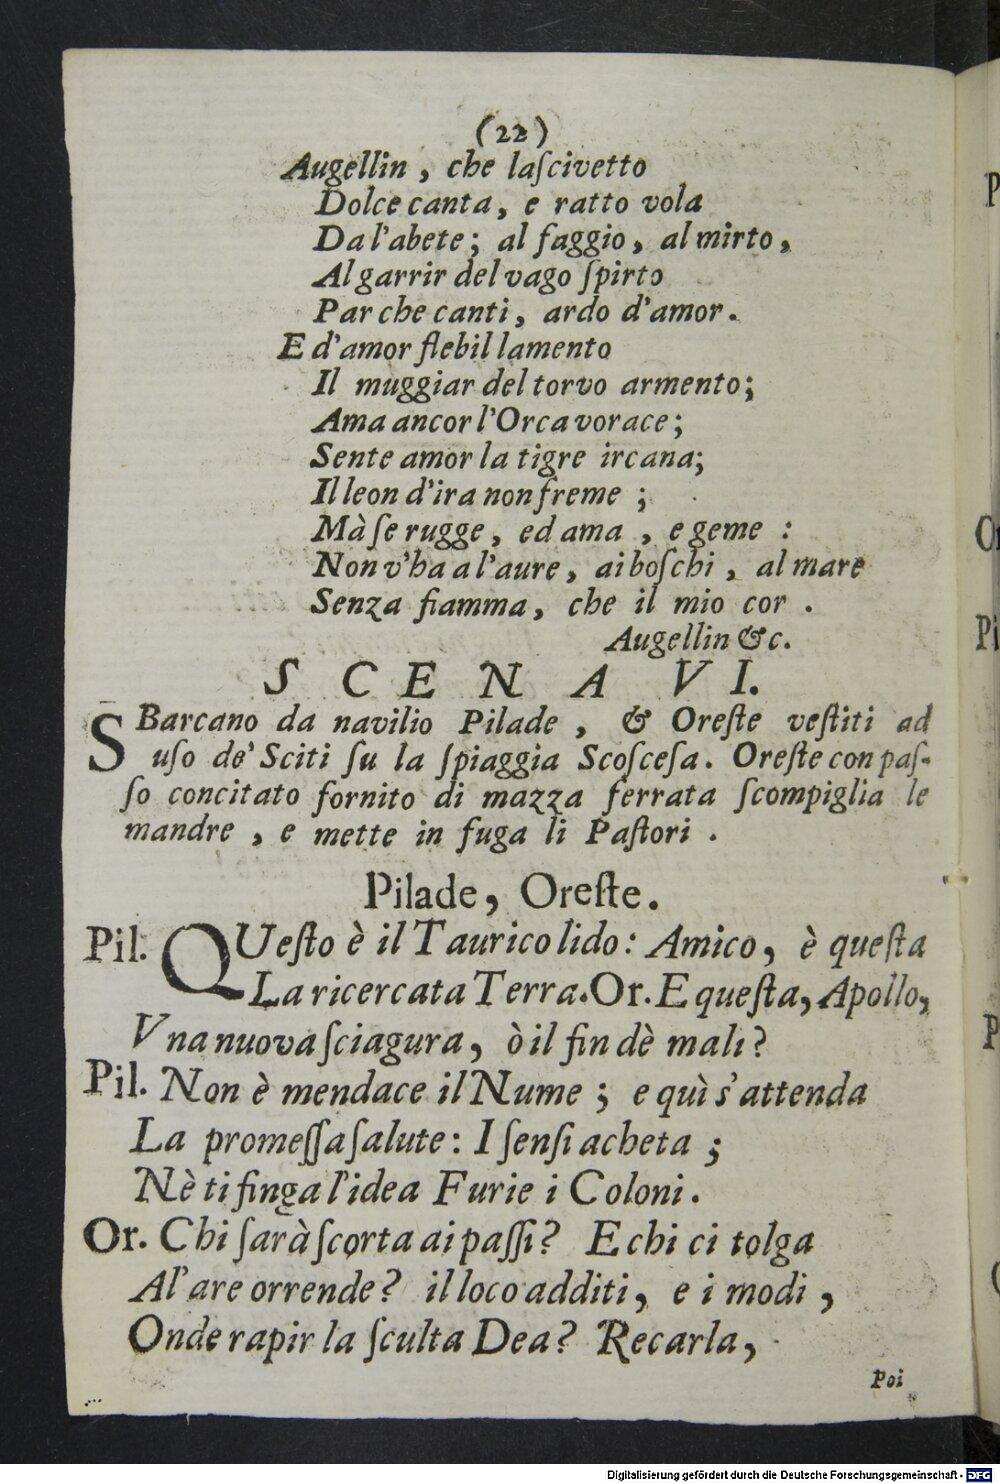 (22)
Augellin, che laſcivetto
Dolce canta, e ratto vola
Da l'abete; al faggio, al mirto,
Al garrir del vago ſpirto
Par che canti, ardo d'amor.
E d'amor flebil lamento
Il muggiar del torvo armento;
Ama ancor l'Orca vorace;
Sente amor la tigre ircana;
Il leon d'ira non freme;
Mà ſe rugge, ed ama, e geme:
Non v'ha a l'aure, ai boſchi, al mare
Senza fiamma, che il mio cor.
Augellin &c.
SCENA VI.
SBarcano da navilio Pilade, & Oreſte veſtiti ad
uſo de' Sciti ſu la ſpiaggia Scoſceſa. Oreſte con paſ-
ſo concitato fornito di mazza ferrata ſcompiglia le
mandre, e mette in fuga li Paſtori.
Pilade, Oreſte.
Pil. QUeſto è il Taurico lido: Amico, è queſta
La ricercata Terra. Or. E queſta, Apollo,
Vna nuova ſciagura, ò il fin dè mali?
Pil. Non è mendace il Nume; e quì s'attenda
La promeſſa ſalute: I ſenſi acheta;
Nè ti finga l'idea Furie i Coloni.
Or. Chi ſarà ſcorta ai paſſi? E chi ci tolga
Al' are orrende? il loco additi, e i modi,
Onde rapir la ſculta Dea? Recarla,
Poi
Digitalisierung gefördert durch die Deutsche Forschungsgemeinschaft - DFG